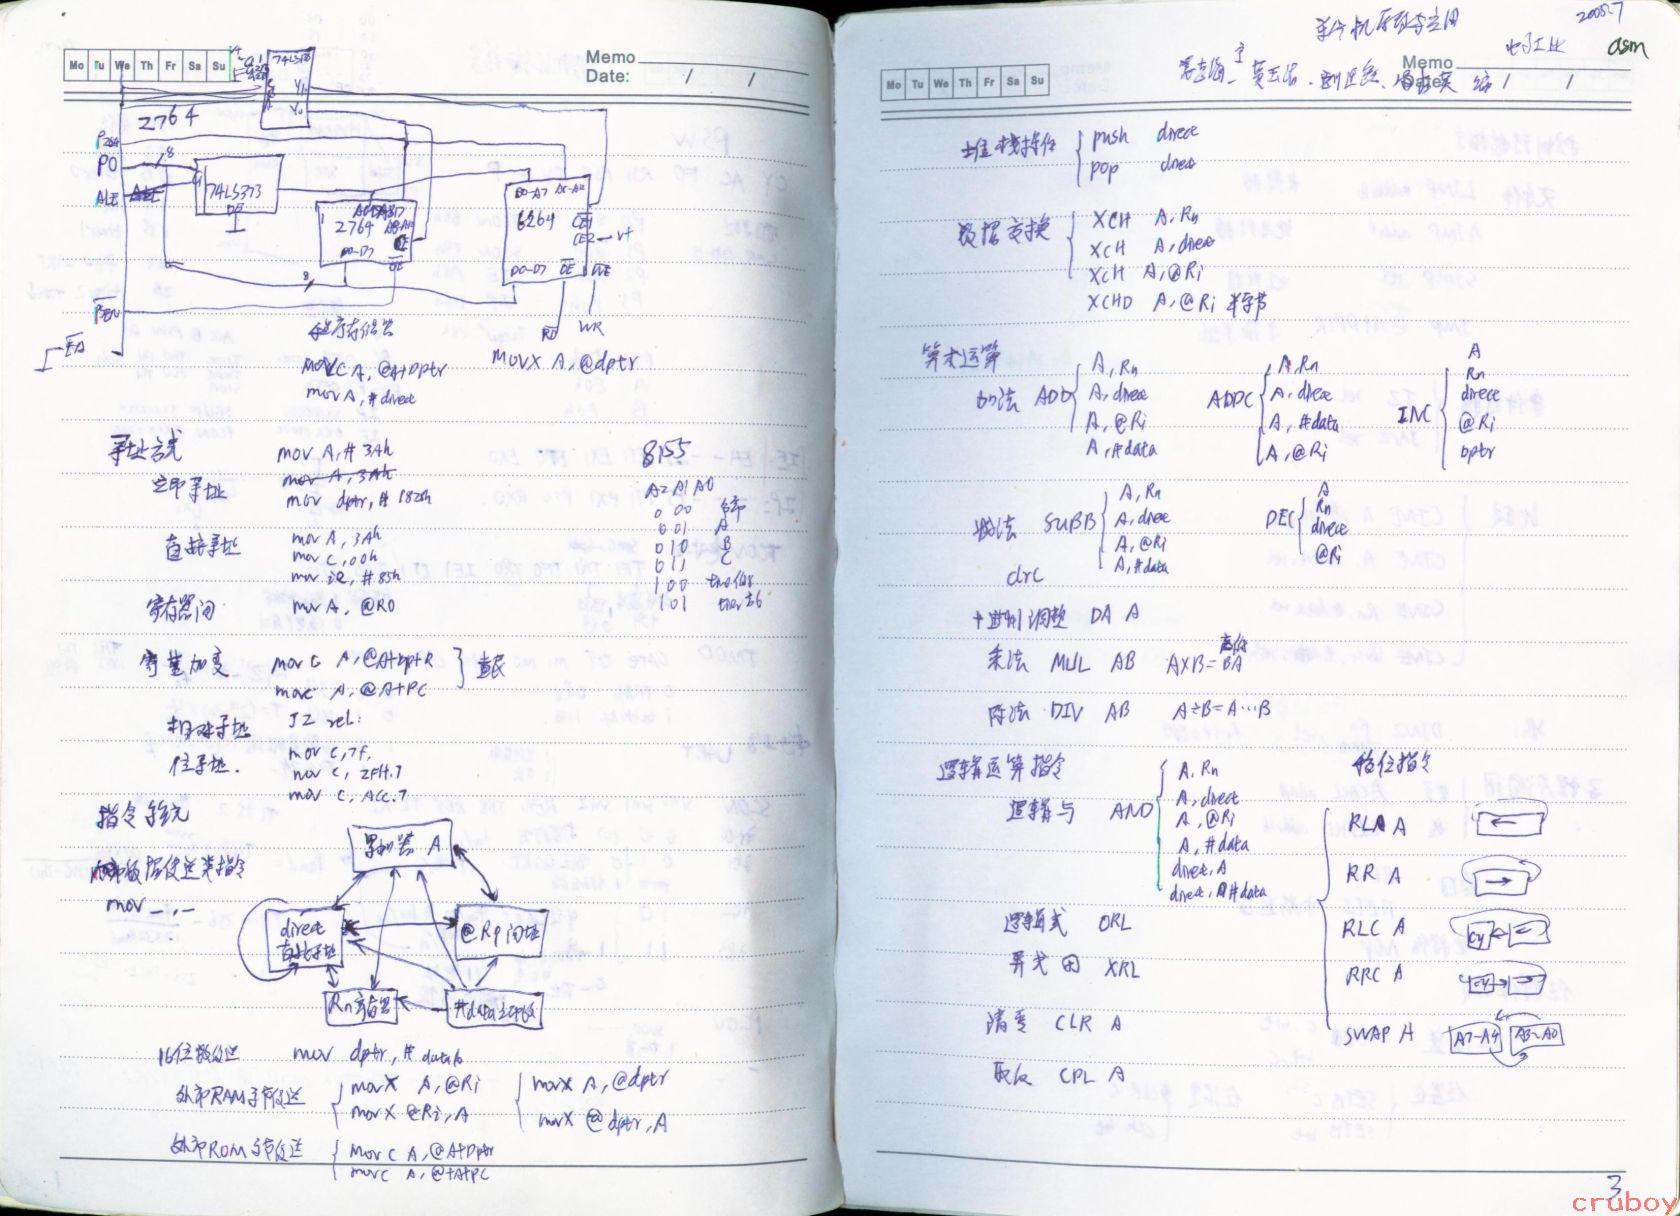 Mo Tu We Th Fr Sa Su
Memo
Date: / /
74LS138
Y1
Y0
2764
P0
8
ALE
G
74LS373
OE
2764
D0-D7
OE
D0-A7 A8-A12
6264
CE1
CE2 V+
D0-D7 OE WE
8
PSEN
EA
RD WR
程序存储器
MOVC A, @A+Dptr
mov A, # direct
MOVX A, @dptr
寻址方式
mov A, # 3Ah
mov A, 3Ah
立即寻址
mov dptr, # 1828h
直接寻址
mov A, 3Ah
mov C, 00h
mov ie, # 85h
寄存器间
mov A, @R0
8155
A2 A1 A0
0 0 0 命令
0 0 1 A
0 1 0 B
0 1 1 C
1 0 0
1 0 1
变基加变
movc A, @A+DptR
movc A, @A+PC
查表
相对寻址
JZ rel:
位寻址.
mov C, 7f,
mov C, 2FH.7
mov C, ACC.7
指令系统
内部数据传送类指令
mov _ , _
累加器 A
direct
直接寻址
@Rp间址
Rn寄存器
#data立即数
16位数传送
mov dptr, # data16
外部RAM字节传送
movX A, @Ri
movX @Ri, A
movX A, @dptr
movX @dptr, A
外部ROM字节传送
movc A, @A+Dptr
movc A, @+A+PC
单片机原理与应用
2005.7
电子工业 asm
Mo Tu We Th Fr Sa Su
Memo
Date: / /
堆栈操作
push direct
pop direct
数据交换
XCH A, Rn
XCH A, direct
XCH A, @Ri
XCHD A, @Ri 半字节
算术运算
加法 ADD
A, Rn
A, direct
A, @Ri
A, #data
ADDC
A, Rn
A, direct
A, #data
A, @Ri
INC
A
Rn
direct
@Ri
dptr
减法 SUBB
A, Rn
A, direct
A, @Ri
A, #data
DEC
A
Rn
direct
@Ri
clr C
十进制调整 DA A
乘法 MUL AB A×B=BA
高低
除法 DIV AB A÷B=A…B
逻辑运算指令
逻辑与 AND
A, Rn
A, direct
A, @Ri
A, #data
direct, A
direct, #data
逻辑或 ORL
异或 XRL
清零 CLR A
取反 CPL A
移位指令
RLA A
RR A
RLC A
CY
RRC A
CY
SWAP A
A7-A4 A3-A0
3
cruboy